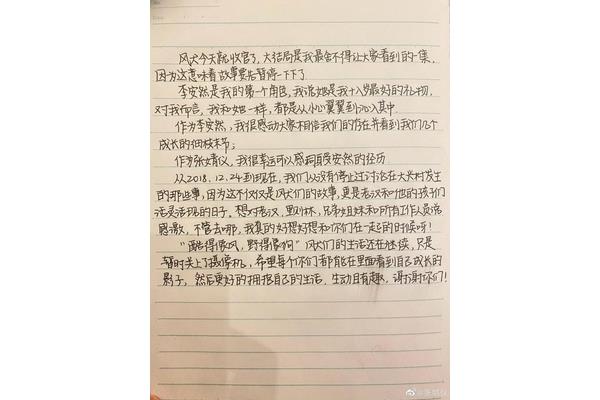 风犬今天就收官了，大结局是我最舍不得让大家看到的一集，
因为这意味着故事要先暂停一下下了
李安然是我的第一个角色，我说她是我十八岁最好的礼物，
对我而言，我和她一样，都是从小心翼翼到沉入其中
作为李安然，我很感动大家相信我们的存在并看到我们几个
成长的细枝末节；
作为张婧仪，我很幸运可以感同身受安然的经历
从2018.12.24到现在，我们从没有停止过讨论在大兴村发生
的那些事，因为这不仅仅是风犬们的故事，更是老汉和他的孩子们
活灵活现的日子。想对老汉，里则林，兄弟姐妹和所有工作人员说
感激，不管去哪，我真的好想好想和你们在一起的时候呀！
"酷得像风，野得像狗"风犬们的生活还在继续，只是
暂时关上了摄像机，希望每个你们都能在里面看到自己成长的
影子，然后更好的拥抱自己的生活，生动且有趣，谢谢你们！
@张婧仪